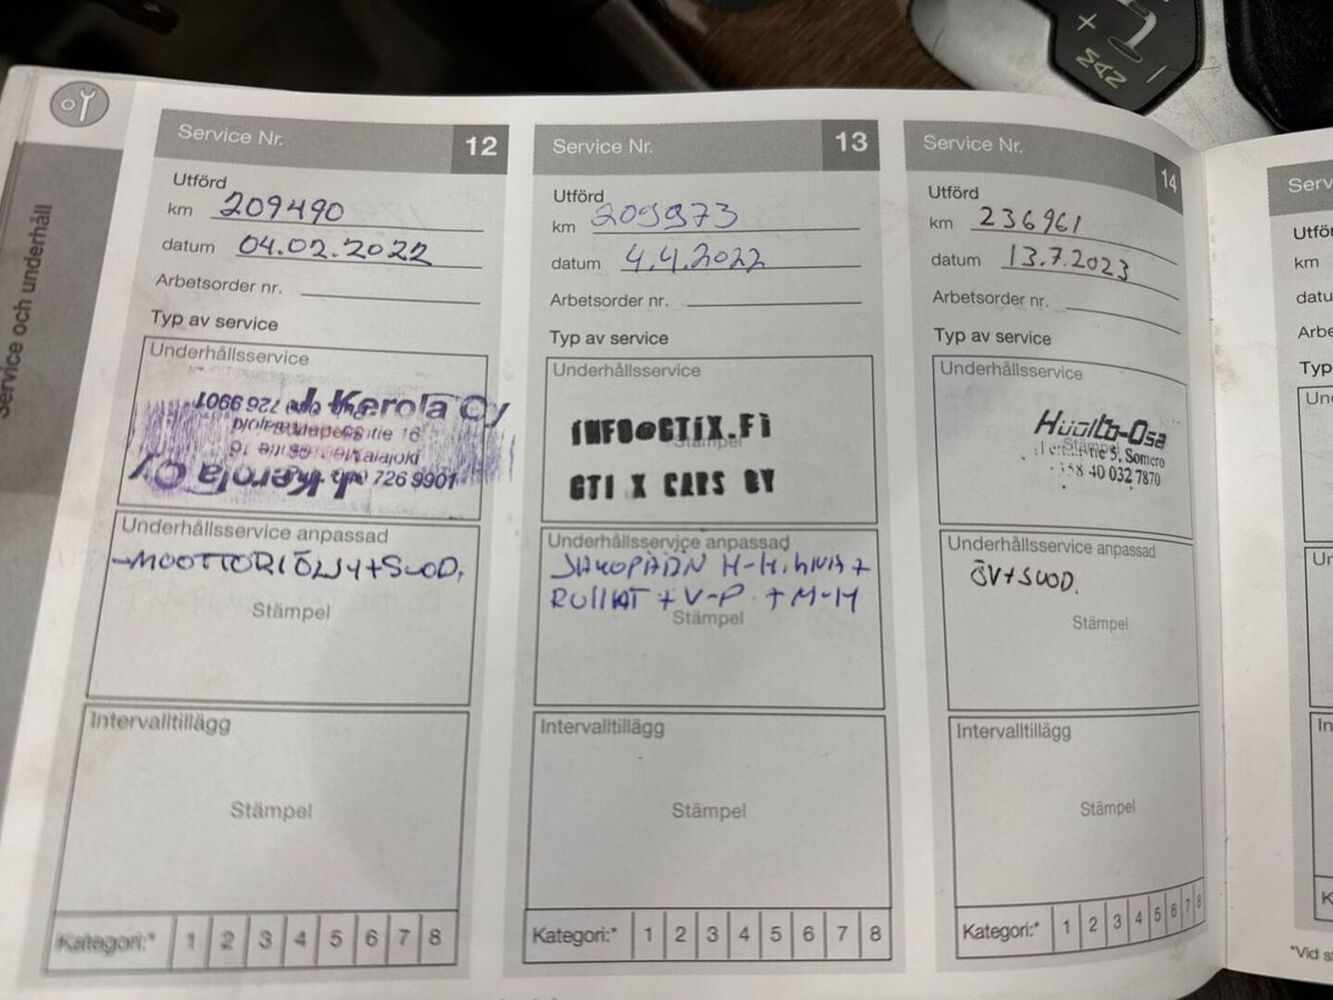 Service och underhåll
Service Nr. 12
Utförd
km 209490
datum 04.02.2022
Arbetsorder nr.
Typ av service
Underhållsservice
Kerola Oy
726 9901
Underhållsservice anpassad
-MOOTTORIÖLJY+SUOD.
Stämpel
Intervalltillägg
Stämpel
Kategori:* 1 2 3 4 5 6 7 8
Service Nr. 13
Utförd
km 209973
datum 4.4.2022
Arbetsorder nr.
Typ av service
Underhållsservice
INFO@GTIX.FI
Stämpel
GTI X CARS OY
Underhållsservice anpassad
JAKOPÄÄN H-HIHNA +
RULLAT + V-P. + M-H
Stämpel
Intervalltillägg
Stämpel
Kategori:* 1 2 3 4 5 6 7 8
Service Nr. 14
Utförd
km 236961
datum 13.7.2023
Arbetsorder nr.
Typ av service
Underhållsservice
Huolto-Osa
Stämpel
5, Somero
40 032 7870
Underhållsservice anpassad
ÖV+SUOD.
Stämpel
Intervalltillägg
Stämpel
Kategori:* 1 2 3 4 5 6 7 8
Serv
Utför
km
datu
Arbe
Typ
Un
Un
In
K
*Vid s
+
MAN
−